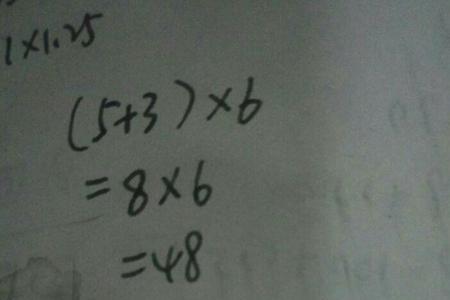 1×1.25
(5+3)×6
=8×6
=48